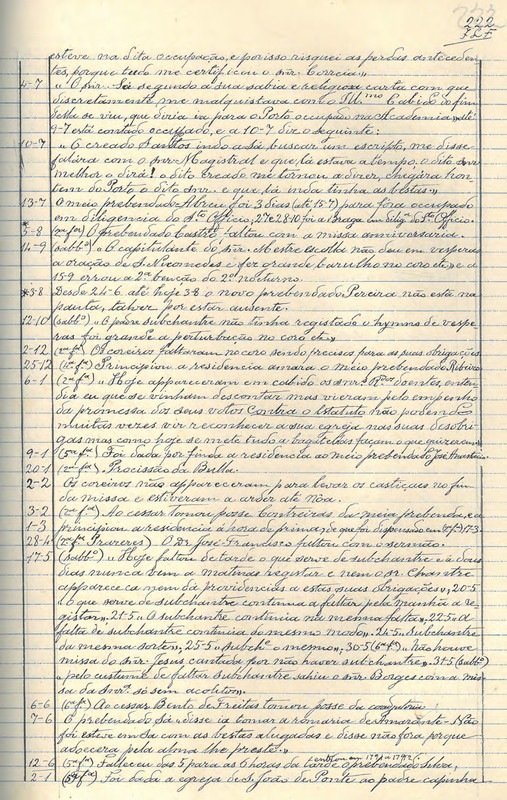 222
esteve na dita occupação, e por isso risquei as perdas anteceden-
tes, porque tudo me certificou o snr. Correia.»
4-7 «O snr. Sá segundo a sua sabia e religiosa carta com que
discretamente me malquistava com o Ill.mo Cabido do fim
della se viu, que diria va para o Porto occupado na Academia» até
9-7 está contado occupado, e a 10-7 diz o seguinte:
10-7 «O creado Santos indo a Sá buscar um escripto, me disse
falára com o snr. Magistral e que lá estava a tempo. o dito snr
melhor o dirá! o dito creado me tornou a dizer, chegára hon-
tem do Porto o dito snr. e que lá inda tinha as bestas.»
13-7 O meio prebendado Abreu foi 3 dias (até 15-7) para fóra occupado
em diligencia do S.to Officio, 27 e 28-10 foi a Braga em dilig.a do S.to Officio.
5-8 O prebendado Castro faltou com a missa anniversaria.
14-9 sabb.o «o capitulante do snr. Mestre escolla não deu em vesperas
a oração de S. Nicomedes e fez grande barulho no coro etc» e a
15-9 errou a 2.a benção do 2.o nocturno.
*3-8 Desde 24-6 até hoje 3-8 o novo prebendado Pereira não está na
pauta, talvez por estar ausente.
12-10 (sabb.o) «O padre subchantre não tinha registado o hymno de vespe-
ras foi grande a perturbação no coro etc.»
2-12 (2.a f.a) Os coreiros faltaram no coro sendo precisos para as suas obrigações.
25-12 Principiou a residencia amara o meio prebendado Ribeiro
6-1 (2.a f.a) «Hoje appareceram em cabido os snr.es R.dos doentes, enten-
dia eu que se vinham descontar mas vieram pelo empenho
da promessa dos seus votos Contra o Estatuto não podendo
muitas vezes vir reconhecer a sua egreja nas suas desobri-
gas mas como hoje se mete tudo a bagatellas façam o que quizerem.»
9-1 (5.a f.a) Foi dada por finda a residencia ao meio prebendado José
20-1 (2.a f.a) Procissão da Bulla.
2-2 Os coreiros não appareceram para levar os castiçaes no fim
da missa e estiveram a arder até Nôa.
3-2 (2.a f.a) Ao cessar tomou posse Contreiras da meia prebenda, e a
1-3 principiou a residencia á hora de prima, de que foi dispensado em 17-3.
28-4 (2.a f. Prazeres) O Dr. José Francisco faltou com o sermão.
17-5 (sabb.o) «Hoje faltou de tarde o que serve de subchantre e á dous
dias nunca vem a matinas registar e nem o snr. Chantre
apparece ca nem dá providencias a estas suas obrigações», 20-5
«o que serve de subchantre continua a faltar pela manhã a re-
gistar». 21-5 «O subchantre continua na mesma falta», 22-5 «a
falta de subchantre continua do mesmo modo». 24-5 «subchantre
da mesma sorte», 25-5 «subch.e o mesmo», 30-5 (6.a f.a) «não houve
missa do snr. Jesus cantada por não haver subchantre». 31-5 (sabb.o)
«pelo custume de faltar subchantre sahiu o snr. Borges com a mis-
sa da Snr.a só sem acolitos».
6-6 (6.a f.a) Ao cessar Bento de Freitas tomou posse da coadjutoria
7-6 O prebendado Sá «disse ia tomar a romaria de Amarante - Não
foi esteve em da com as bestas alugadas e disse não fora porque
adoecera pela alma lhe preste.»
12-6 (5.a f.a) Falleceu das 5 para as 6 horas da tarde o prebendado Silva,
2-1 Foi dada a egreja de S. João de Ponte ao padre capinha